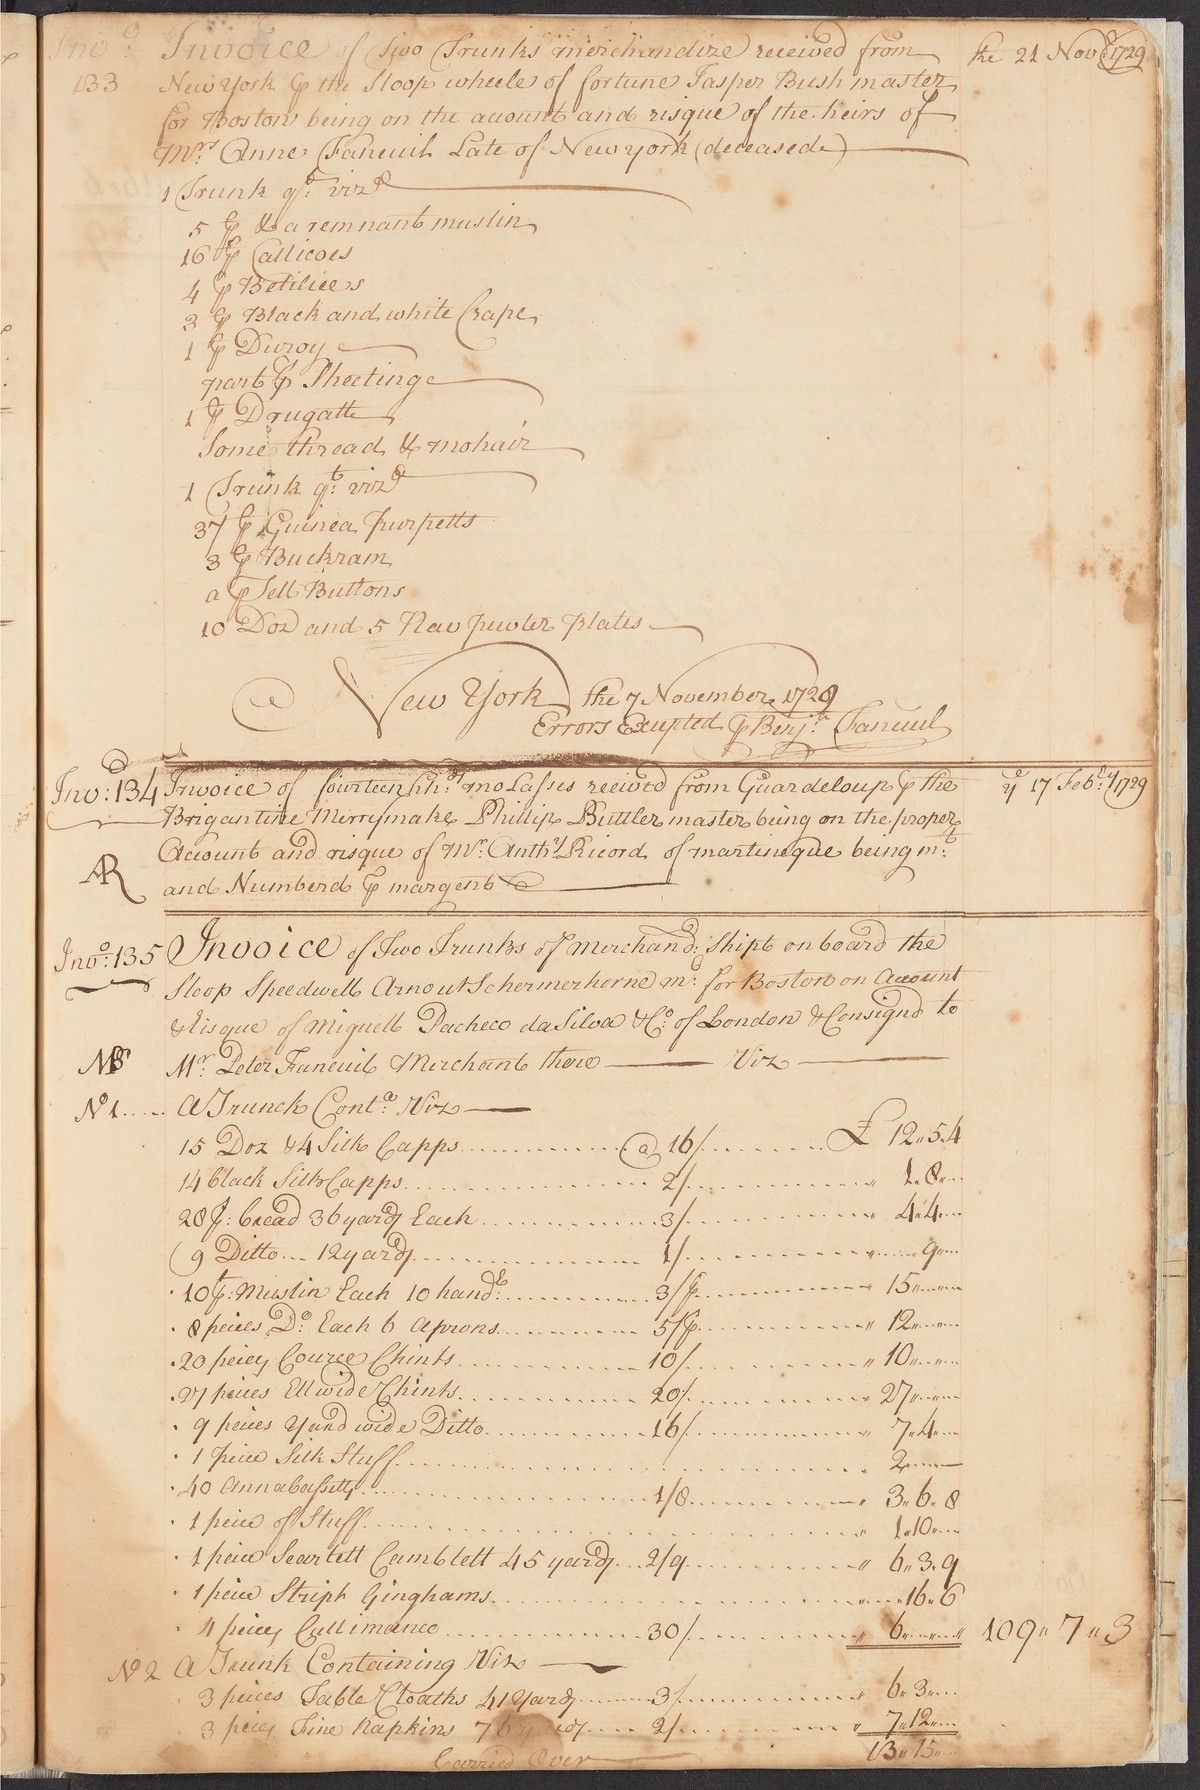 Invo 133 Invoice of Two Trunks merchandize received from the 21 Nov 1729
New York p the Sloop wheele of fortune Jasper Bush master
for Boston being on the account and risque of the heirs of
Mrs Anne Faneuil Late of New york (deceased)
1 Trunk qt vizd
5 p & a remnant muslin
16 p Callicoes
4 p Betilices
3 p Black and white Crape
1 p Duroy
part p Sheeting
1 p Drugatt
Some thread & mohair
1 Trunk qt vizd
37 p Guinea purpetts
3 p Buckram
a p Sell Buttons
10 Doz and 5 New pewter plates
New York the 7 November 1729
Errors Excepted p Benja Faneuil
Invo: 134 Invoice of fourteen hhds molasses received from Guardeloup p the ye 17 Feb 1729
Brigantine Merrymake Phillip Buttler master being on the proper
AR Account and risque of Mr Anthy Ricord of martineque being mt
and Numberd p margent
Invo: 135 Invoice of Two Trunks of Merchand: Shipt on board the
Sloop Speedwell Arnout Schermerhorne mr for Boston on Account
& Risque of Miguell Pacheco da Silva & Co of London & Consignd to
Mr Peter Faneuil Merchant there Viz
No 1 A Trunck Conta Viz
15 Doz & 4 Silk Capps @ 16/ £ 12"5.4
14 black Silk Capps 2/ " 1"8"
28 p: bread 36 yards Each 3/ " 4"4"
9 Ditto 12 yards 1/ " 9"
10 p: Muslin Each 10 hands: 3/p " 15"
8 peices Do Each 6 Aprons 5/p " 12"
20 peices Cource Chints 10/ " 10"
27 peices Ell wide Chints 20/ " 27"
9 peices Yard wide Ditto 16/ " 7"4"
1 peice Silk Stuff 2"
40 Annabassetts 1/8 " 3"6"8
1 peice of Stuff " 1"10"
1 peice Scarlett Camblett 45 yards 2/9 " 6"3"9
1 peice Stript Ginghams " 16"6
4 peices Callimanco 30/ " 6" " 109"7"3
No 2 A Trunk Containing Viz
3 peices Table Cloaths 41 Yards 3/ " 6"3"
3 peices Fine Napkins 76 yards 2/ " 7"12"
Carried Over 13"15"